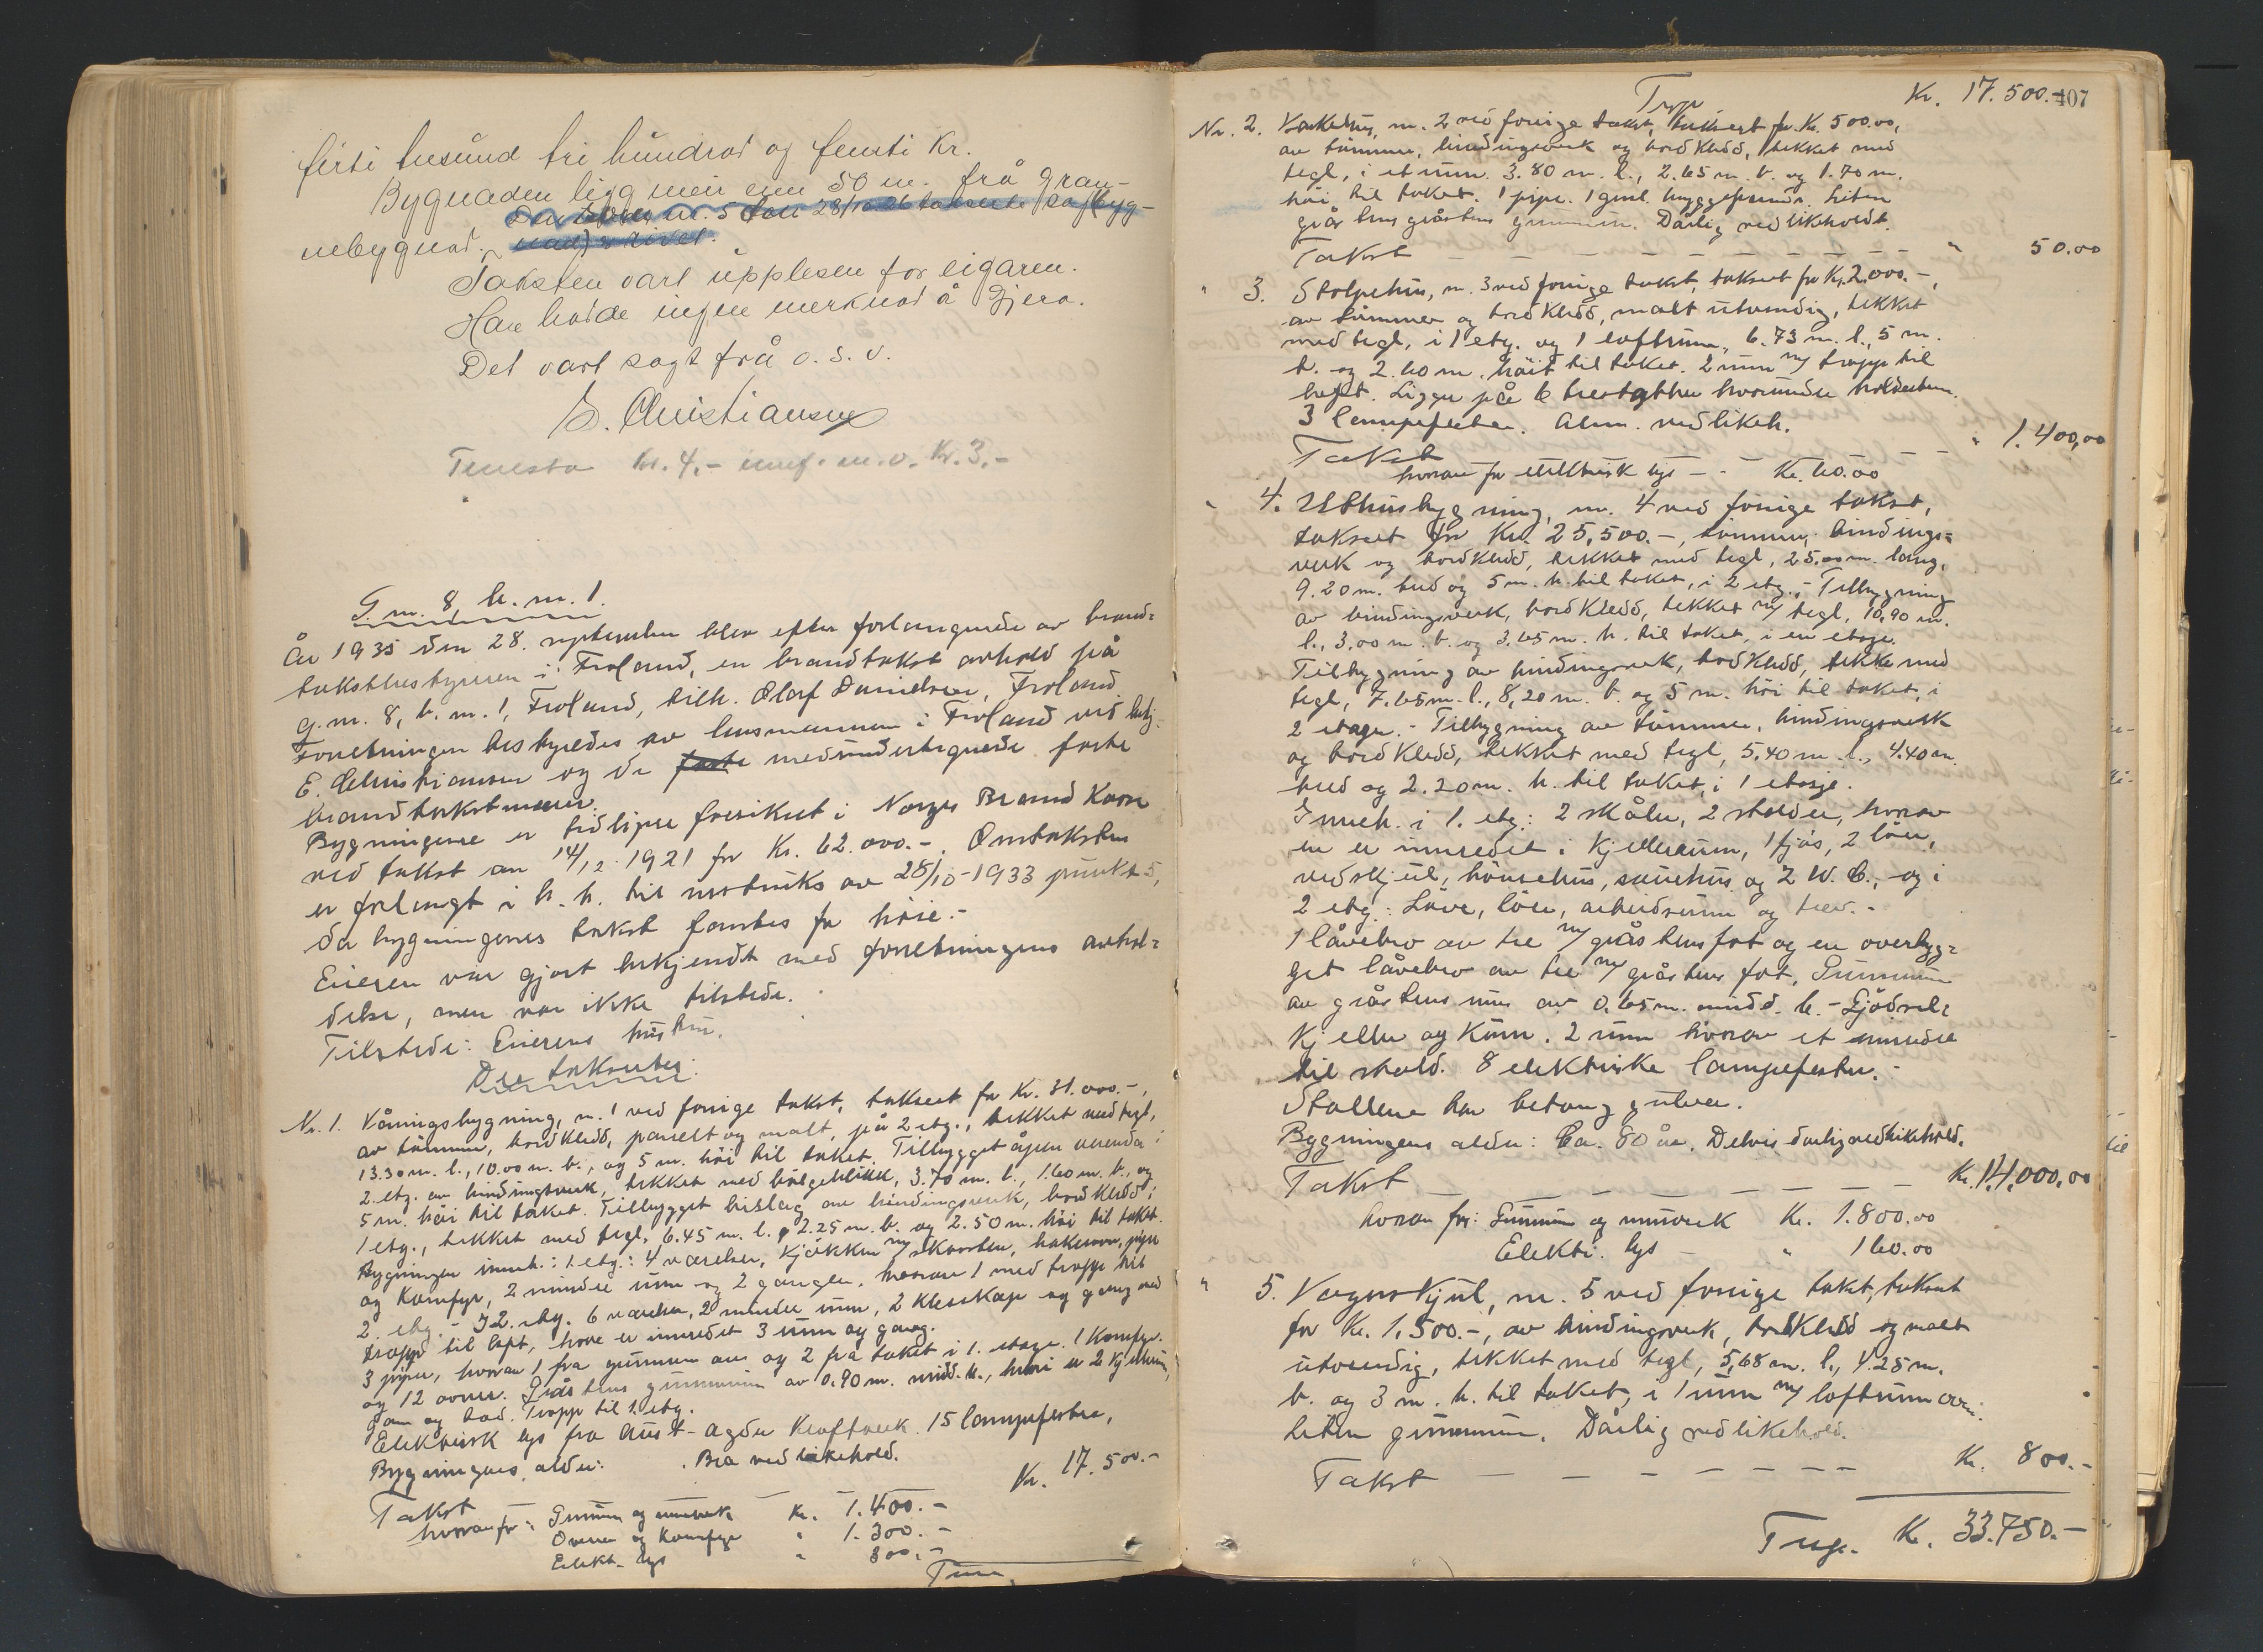 firti tusund tri hundrad og femti Kr.
Bygnaden ligg meir enn 50 m. frå gran-
nebygnad.
Taksten vart upplesen for eigaren.
Han hadde ingen merknad å gjera.
Det vart sagt frå o. s. v.
E. Christiansen
Tenesta Kr. 4,- m. v. Kr. 3,-
G. nr. 8, b. nr. 1.
År 1935 den 28. september blev efter forlangende av brand-
takstbestyreren i Froland, en brandtakst avholdt på
g. nr. 8, b. nr. 1, Froland, tilh. Olaf Danielsen, Froland
Forretningen bestyredes av lensmannen i Froland ved betj.
E. Christiansen og de faste medundertegnede faste
brandtakstmenn.
Bygningene er tidligere forsikret i Norges Brand Kasse
ved takst av 14/12 1921 for Kr. 62.000.-. Omtaksten
er forlangt i h. h. til instruks av 25/10-1933 punkt 5,
da bygningenes takst fantes for høie.-
Eieren var gjort bekjendt med forretningens avhol-
delse, men var ikke tilstede.
Tilstede: Eierens hustru.
Der takseredes:
Nr. 1. Våningsbygning, nr. 1 ved forrige takst, taksert for Kr. 31.000.-,
av tømmer, bordkledd, panelt og malt, på 2 etg., tekket med tegl,
13.30 m. l., 10.00 m. b., og 5 m. høi til taket. Tilbygget åpen veranda i
2. etg. av bindingsverk, tekket med bølgeblikk, 3.70 m. l., 1.60 m. b., og
5 m. høi til taket. Tilbygget bislag av bindingsverk, bordkledd i
1 etg., tekket med tegl, 6.45 m. l., 2.25 m. b. og 2.50 m. høi til taket.
Bygningen inneh.: 1. etg.: 4 værelser, kjøkken m/ skorsten, bakerovn, pipe
og komfyr, 2 mindre rum og 2 ganger, hvorav 1 med trapp til
2. etg. - I 2. etg. 6 værelser, 2 mindre rum, 2 kleskap og gang med
trapp til loft, hvor er innredet 3 rum og gang.
3 piper, hvorav 1 fra grunnen av og 2 fra taket i 1. etage. 1 Komfyr
og 12 ovner. Gråstens grunnmur av 0.90 m. midd. h., hvori er 2 kjellerrum,
gan og bod. Trapp til 1. etg.
Elektrisk lys fra Aust-Agder Kraftverk. 15 lampefester,
Bygningens alder: . Bra vedlikehold.
Takst Kr. 17.500.-
hvorav for: Grunn og murverk Kr. 1.400.-
Ovner og Komfyr " 1.300.-
Elekt. lys " 300.-
Trans.
407
Trsp Kr. 17.500.-
Nr. 2. nr. 2 ved forrige takst, taksert for Kr. 500.00,
av tømmer, bindingsverk og bordkledd, tekket med
tegl, i et rum. 3.80 m. l., 2.65 m. b. og 1.70 m.
høi til taket. 1 pipe. 1 gml. bryggepanne. Liten
grå stens gråstens grunnmur. Dårlig vedlikeholdt.
Takst " 50.00
" 3. Stolpehus, nr. 3 ved forrige takst, taksert for Kr. 2.000.-,
av tømmer og bordkledd, malt utvendig, tekket
med tegl, i 1 etg. og 1 loftsrum, 6.73 m. l., 5 m.
b. og 2.60 m. høit til taket. 2 rum m/ trapp til
loft. Ligger på 6 trestøtter hvorunder
3 lampefester. Alm. vedlikeh.
Takst " 1.400,00
hvorav for elektrisk lys - Kr. 60.00
" 4. Uthusbygning, nr. 4 ved forrige takst,
taksert for Kr. 25.500.-, tømmer, bindings-
verk og bordkledd, tekket med tegl, 25.00 m. lang,
9.20 m. bred og 5 m. h. til taket, i 2 etg. - Tilbygning
av bindingsverk, bordkledd, tekket m/ tegl, 10,90 m.
l., 3.00 m. b. og 3.65 m. h. til taket, i en etage.
Tilbygning av bindingsverk, bordkledd, tekket med
tegl, 7.65 m. l., 8,20 m. b. og 5 m. høi til taket, i
2 etager. - Tilbygning av tømmer, bindingsverk
og bordkledd, tekket med tegl, 5.40 m. l., 4.40 m.
bred og 2.20 m. h. til taket, i 1 etasje.
Inneh. i 1. etg.: 2 skåler, 2 stalder, hvorav
en er innredet i kjellerrum, 1 fjøs, 2 løer,
vedskjul, hønsehus, sauehus og 2 W. C., og i
2 etg.: Løve, løer, arbeidsrum og trev. -
1 låvebro av tre m/ gråstens fot og en overbyg-
get låvebro av tre m/ gråstens fot. Grunnmur
av gråstens mur av 0,65 m. midd. h. - Gjødsel-
kjeller og . 2 rum hvorav et innredet
til stald. 8 elektriske lampefester. -
Stallene har betong gulver.
Bygningens alder: Ca. 80 år. Delvis dårlig vedlikehold.
Takst Kr. 14.000,00
hvorav for: Grunnmur og murverk Kr. 1.800.00
Elektr. lys - " 160.00
" 5. Vognskjul, nr. 5 ved forrige takst, taksert
for Kr. 1.500.-, av bindingsverk, bordkledd og malt
utvendig, tekket med tegl, 5,68 m. l., 4.25 m.
b. og 3 m. h. til taket, i 1 rum m/ loftsrum over.
Liten grunnmur. Dårlig vedlikehold.
Takst Kr. 800.-
Trsp. Kr. 33.750.-